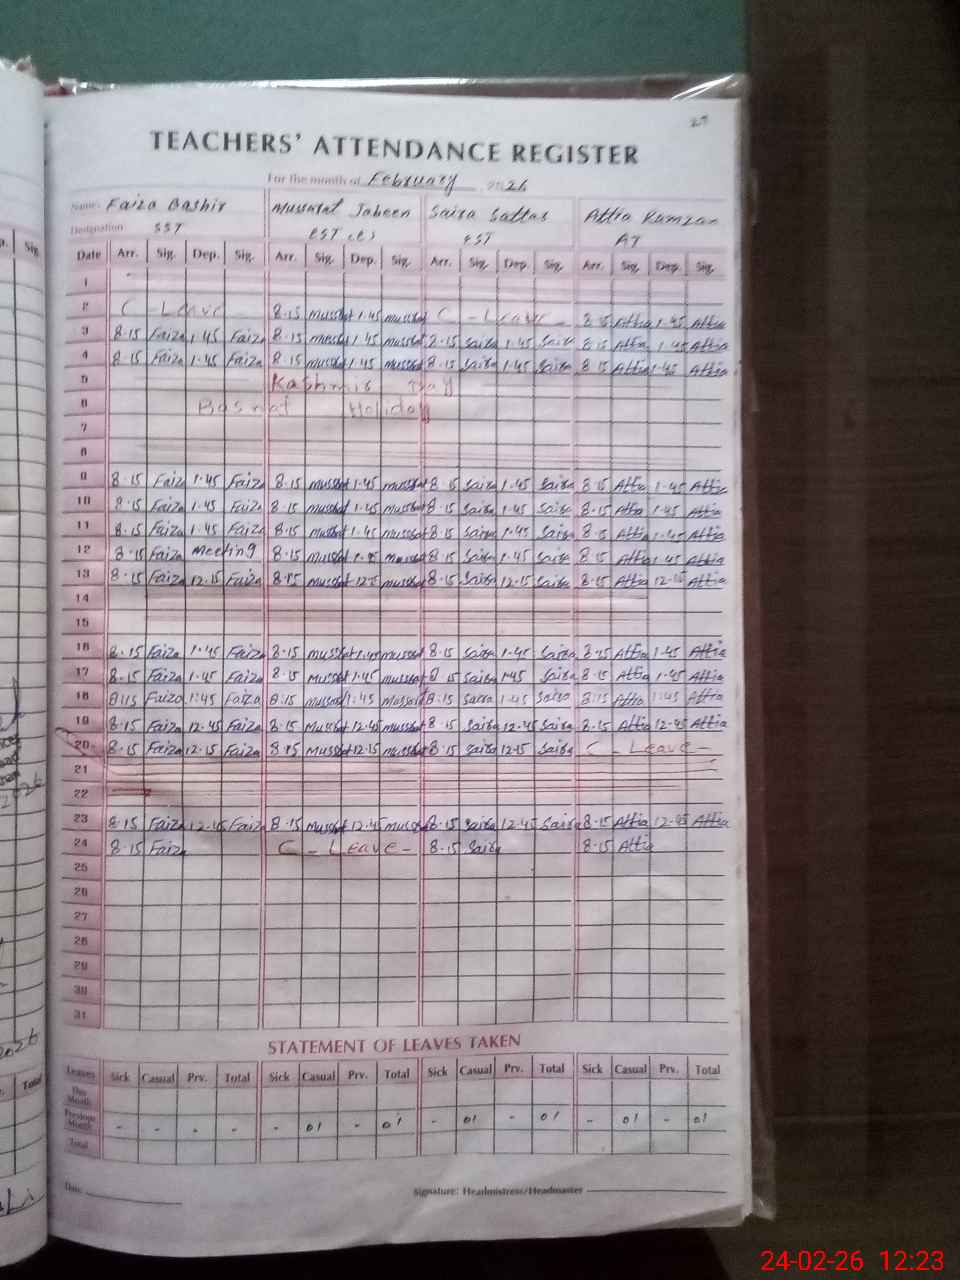 27
TEACHERS' ATTENDANCE REGISTER
For the month of February 2026
Name: Faiza Bashir Mussarat Jabeen Saira Sattar Attia Ramzan
Designation SST EST EST AT
Date Arr. Sig. Dep. Sig. Arr. Sig. Dep. Sig. Arr. Sig. Dep. Sig. Arr. Sig. Dep. Sig.
1
2 C - Leave 8.15 Mussrat 1.45 Mussrat C - Leave - 8.15 Attia 1.45 Attia
3 8.15 Faiza 1.45 Faiza 8.15 Mussrat 1.45 Mussrat 8.15 Saira 1.45 Saira 8.15 Attia 1.45 Attia
4 8.15 Faiza 1.45 Faiza 8.15 Mussrat 1.45 Mussrat 8.15 Saira 1.45 Saira 8.15 Attia 1.45 Attia
5 Kashmir Day
6 Basnat Holiday
7
8
9 8.15 Faiza 1.45 Faiza 8.15 Mussrat 1.45 Mussrat 8.15 Saira 1.45 Saira 8.15 Attia 1.45 Attia
10 8.15 Faiza 1.45 Faiza 8.15 Mussrat 1.45 Mussrat 8.15 Saira 1.45 Saira 8.15 Attia 1.45 Attia
11 8.15 Faiza 1.45 Faiza 8.15 Mussrat 1.45 Mussrat 8.15 Saira 1.45 Saira 8.15 Attia 1.45 Attia
12 8.15 Faiza Meeting 8.15 Mussrat Mussrat 8.15 Saira 1.45 Saira 8.15 Attia 1.45 Attia
13 8.15 Faiza 12.15 Faiza 8.15 Mussrat Mussrat 8.15 Saira 12.15 Saira 8.15 Attia 12.15 Attia
14
15
16 8.15 Faiza 1.45 Faiza 8.15 Mussrat 1.45 Mussrat 8.15 Saira 1.45 Saira 8.15 Attia 1.45 Attia
17 8.15 Faiza 1.45 Faiza 8.15 Mussrat 1.45 Mussrat 8.15 Saira 1.45 Saira 8.15 Attia 1.45 Attia
18 8:15 Faiza 1:45 Faiza 8:15 Mussrat 1:45 Mussrat 8.15 Saira 1.45 Saira 8:15 Attia 1:45 Attia
19 8.15 Faiza 12.45 Faiza 8.15 Mussrat 12.45 Mussrat 8.15 Saira 12.45 Saira 8.15 Attia 12.45 Attia
20 8.15 Faiza 12.15 Faiza 8.15 Mussrat 12.15 Mussrat 8.15 Saira 12.15 Saira C - Leave -
21
22
23 8.15 Faiza 12.45 Faiza 8.15 Mussrat 12.45 Mussrat 8.15 Saira 12.45 Saira 8.15 Attia 12.45 Attia
24 8.15 Faiza C - Leave - 8.15 Saira 8.15 Attia
25
26
27
28
29
30
31
STATEMENT OF LEAVES TAKEN
Leaves Sick Casual Prv. Total Sick Casual Prv. Total Sick Casual Prv. Total Sick Casual Prv. Total
This Month
Previous Month - - - - - 01 - 01 - 01 - 01 - 01 - 01
Total
Date Signature: Headmistress/Headmaster
24-02-26 12:23